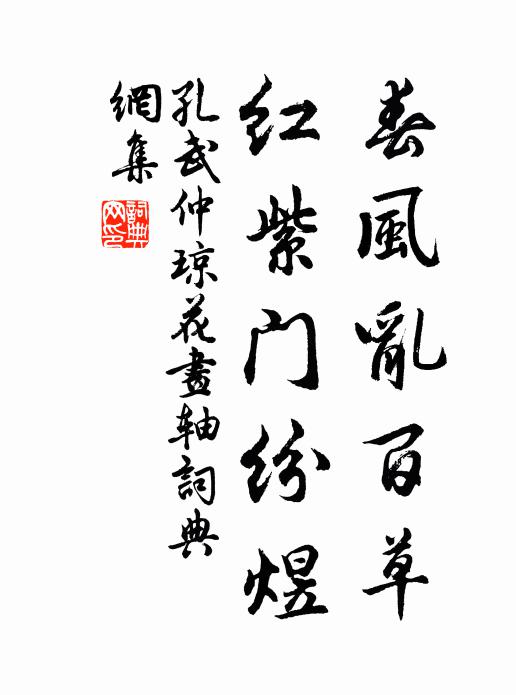 春風亂百草
紅紫門紛煜
孔武仲瓊花畫軸詞典
網集
詞典網印